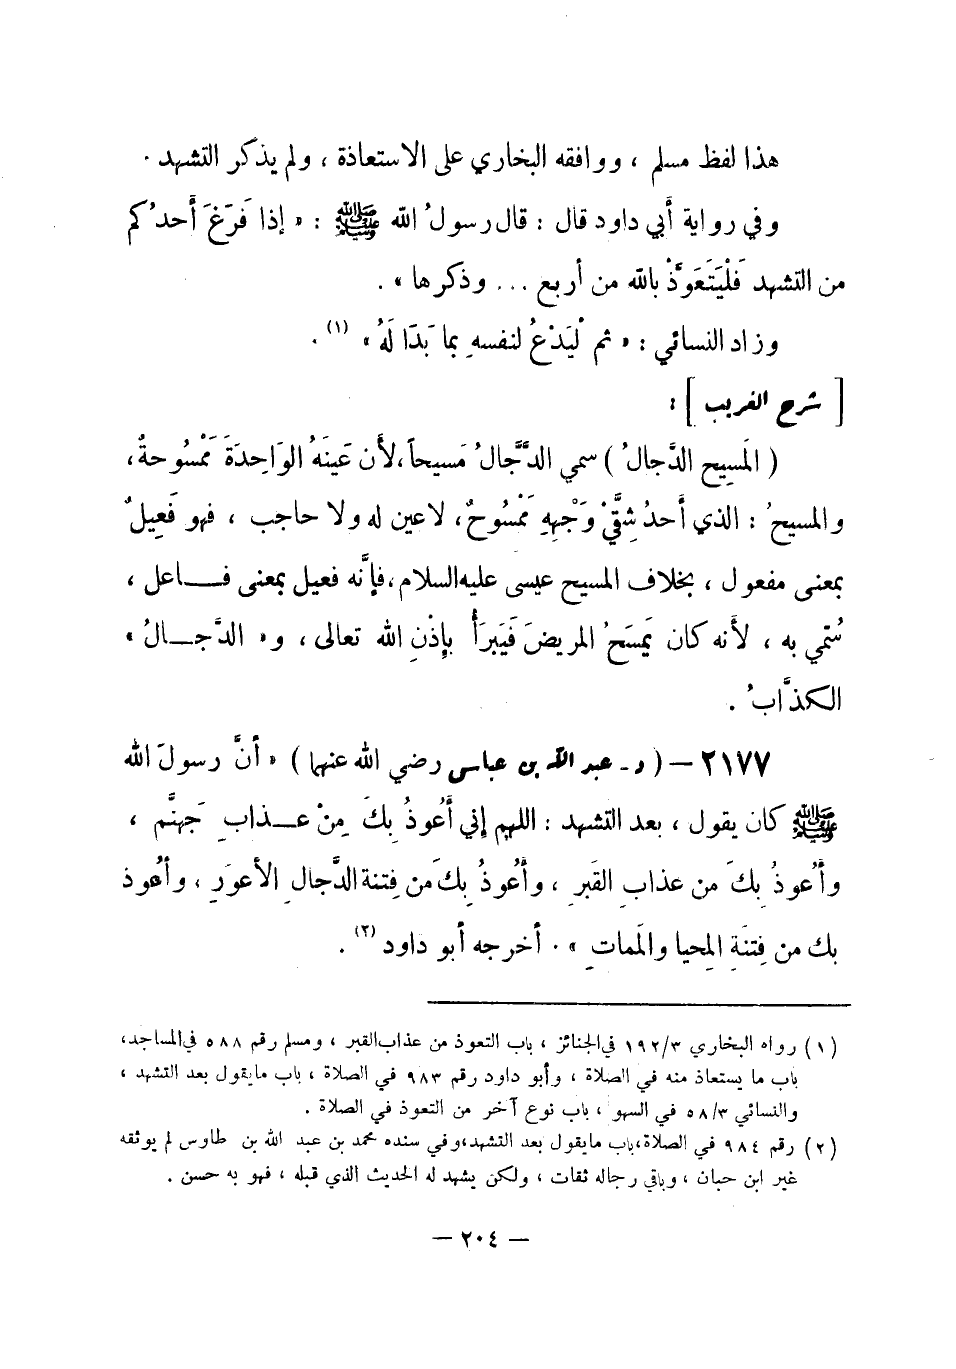 هذا لفظ مسلم ، ووافقه البخاري على الاستعاذة ، ولم يذكر التشهد .
وفي رواية أبي داود قال : قال رسولُ الله ﷺ : « إذا فَرَغَ أَحدُكم
من التشهد فَلْيَتَعَوَّذْ بالله من أربع ... وذكرها » .
وزاد النسائي : « ثم لْيَدْعُ لنفسهِ بما بَدَا لَهُ » (١) .
[ شرح الغريب ] :
( المَسِيح الدَّجالُ ) سمي الدَّجَّالُ مَسيحاً،لأَن عَينَهُ الوَاحِدَةَ مَمْسُوحةٌ،
والمسيحُ : الذي أَحدُ شِقَّيْ وَجْهِهِ مَمْسُوحٌ، لاعين له ولا حاجب ، فهو فَعِيلٌ
بمعنى مفعول ، بخلاف المسيح عيسى عليه السلام،فإنَّه فعيل بمعنى فـــاعل ،
سُمِّي به ، لأَنه كان يَمسَحُ المريضَ فَيَبرَأُ بإذْنِ الله تعالى، و« الدَّجـــالُ »
الكذَّابُ .
٢١٧٧ – ( د - عبد الله بن عباس رضي الله عنهما ) « أنَّ رسولَ الله
ﷺ كان يقول ، بعد التشهد : اللهم إني أَعُوذُ بِكَ مِنْ عـــذابِ جَهنَّم ،
وأَعُوذُ بِكَ من عذابِ القَبرِ ، وأَعُوذُ بِكَ من فِتنة الدَّجالِ الأعوَرِ ، وأعُوذ
بك من فِتنَةِ المِحيا والمَماتِ » . أخرجه أبو داود (٢) .
(١) رواه البخاري ١٩٢/٣ في الجنائز ، باب التعوذ من عذاب القبر ، ومسلم رقم ٥٨٨ في المساجد،
باب ما يستعاذ منه في الصلاة ، وأبو داود رقم ٩٨٣ في الصلاة ، باب مايقول بعد التشهد ،
والنسائي ٥٨/٣ في السهو ، باب نوع آخر من التعوذ في الصلاة .
(٢) رقم ٩٨٤ في الصلاة،باب مايقول بعد التشهد،وفي سنده محمد بن عبد الله بن طاوس لم يوثقه
غير ابن حبان ، وباقي رجاله ثقات ، ولكن يشهد له الحديث الذي قبله ، فهو به حسن .
— ٢٠٤ —